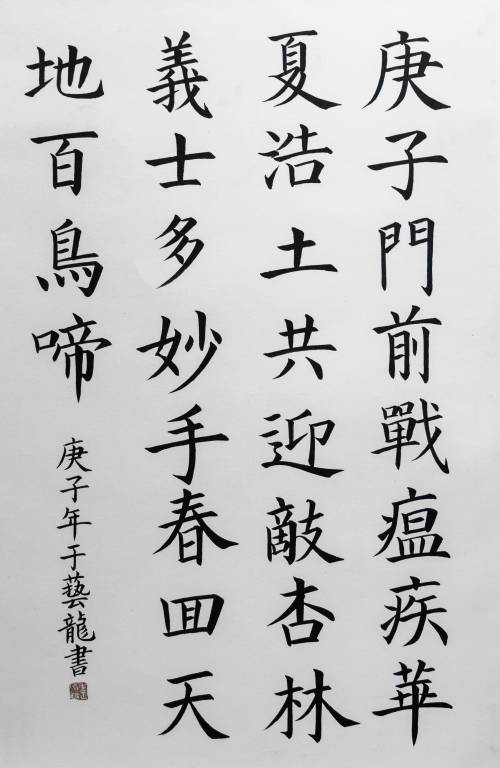 庚子門前戰瘟疾華
夏浩土共迎敵杏林
義士多妙手春回天
地百鳥啼
庚子年于藝龍書